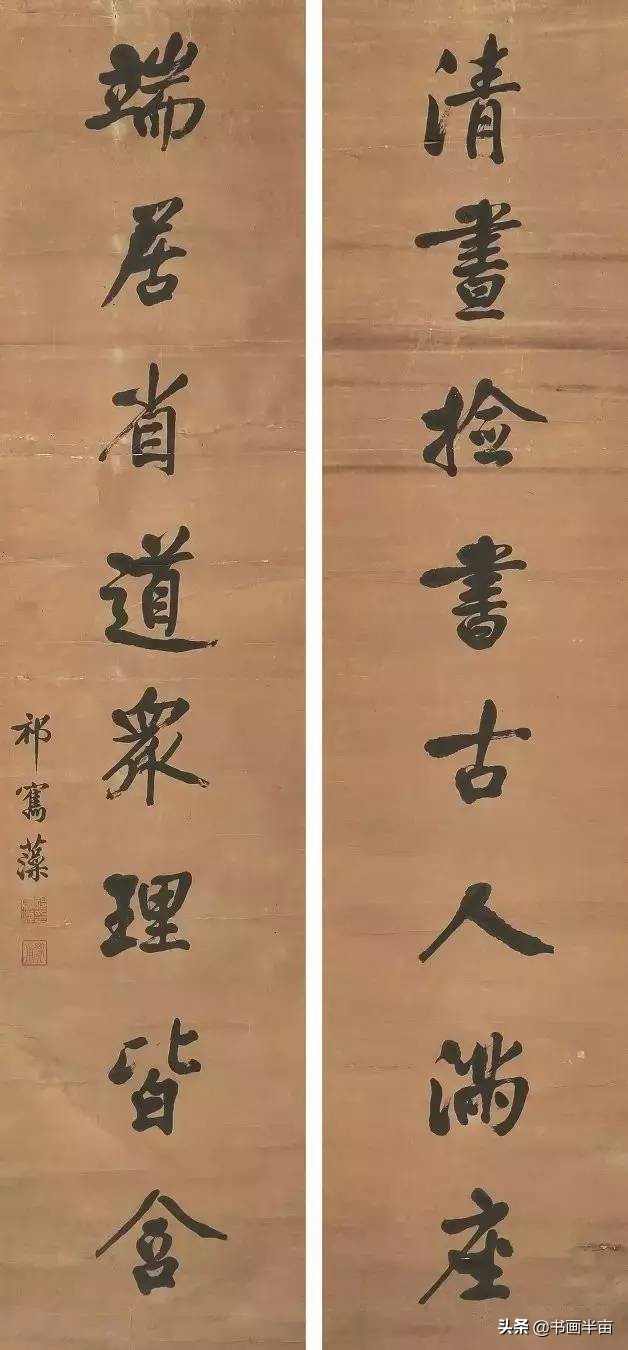 清晝撿書古人滿座
端居省道衆理皆含
祁寯藻
头条 @书画半亩